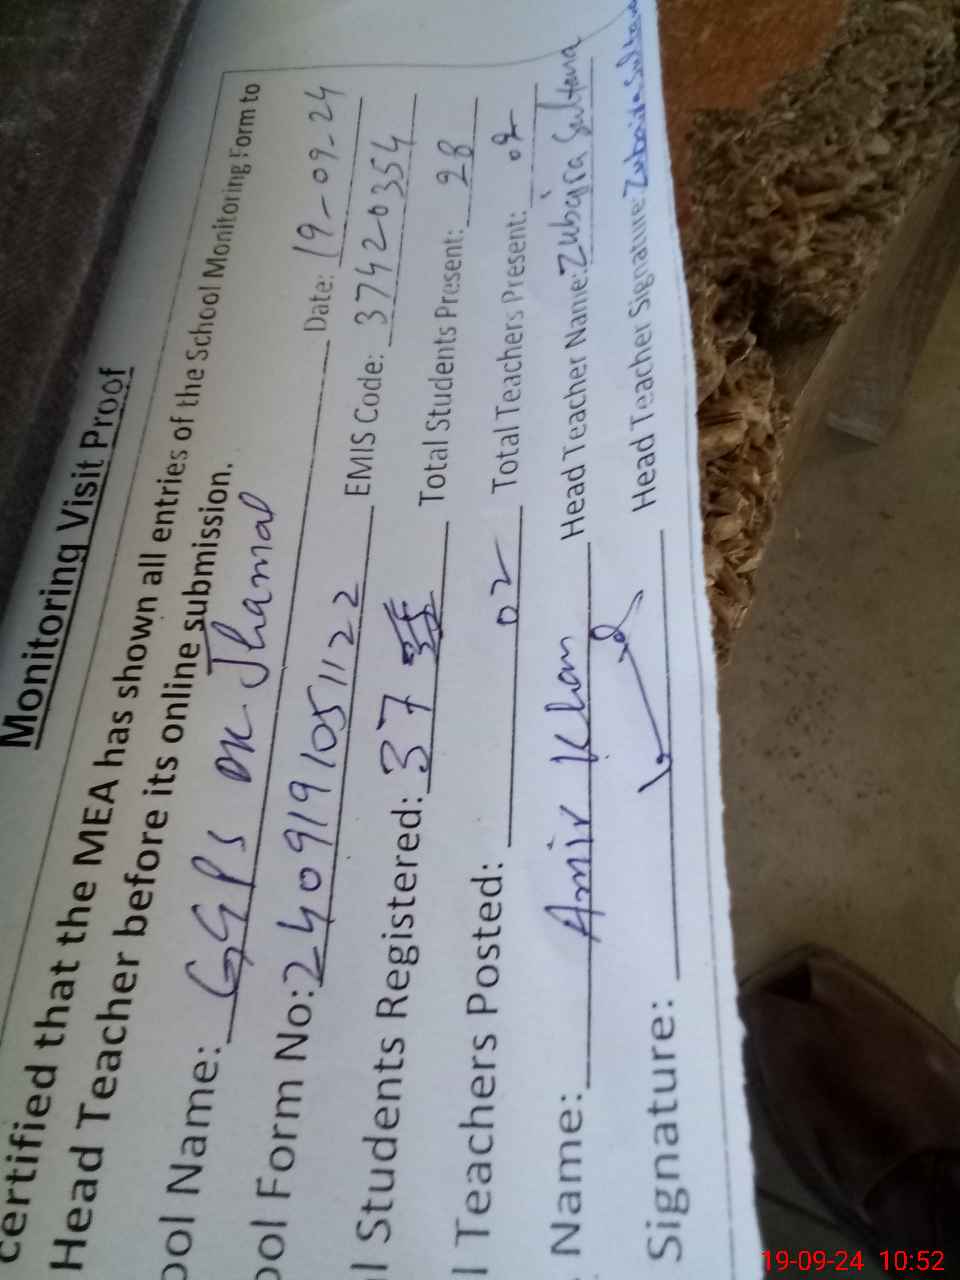 Monitoring Visit Proof
certified that the MEA has shown all entries of the School Monitoring Form to
Head Teacher before its online submission.
ool Name: GGPS DK Jhamal Date: 19-09-24
ool Form No: 2409191051122 EMIS Code: 37420354
l Students Registered: 37 Total Students Present: 28
l Teachers Posted: 02 Total Teachers Present: 02
Name: Amir Khan Head Teacher Name: Sultana
Signature: Head Teacher Signature: Zubaida Sultana
19-09-24 10:52